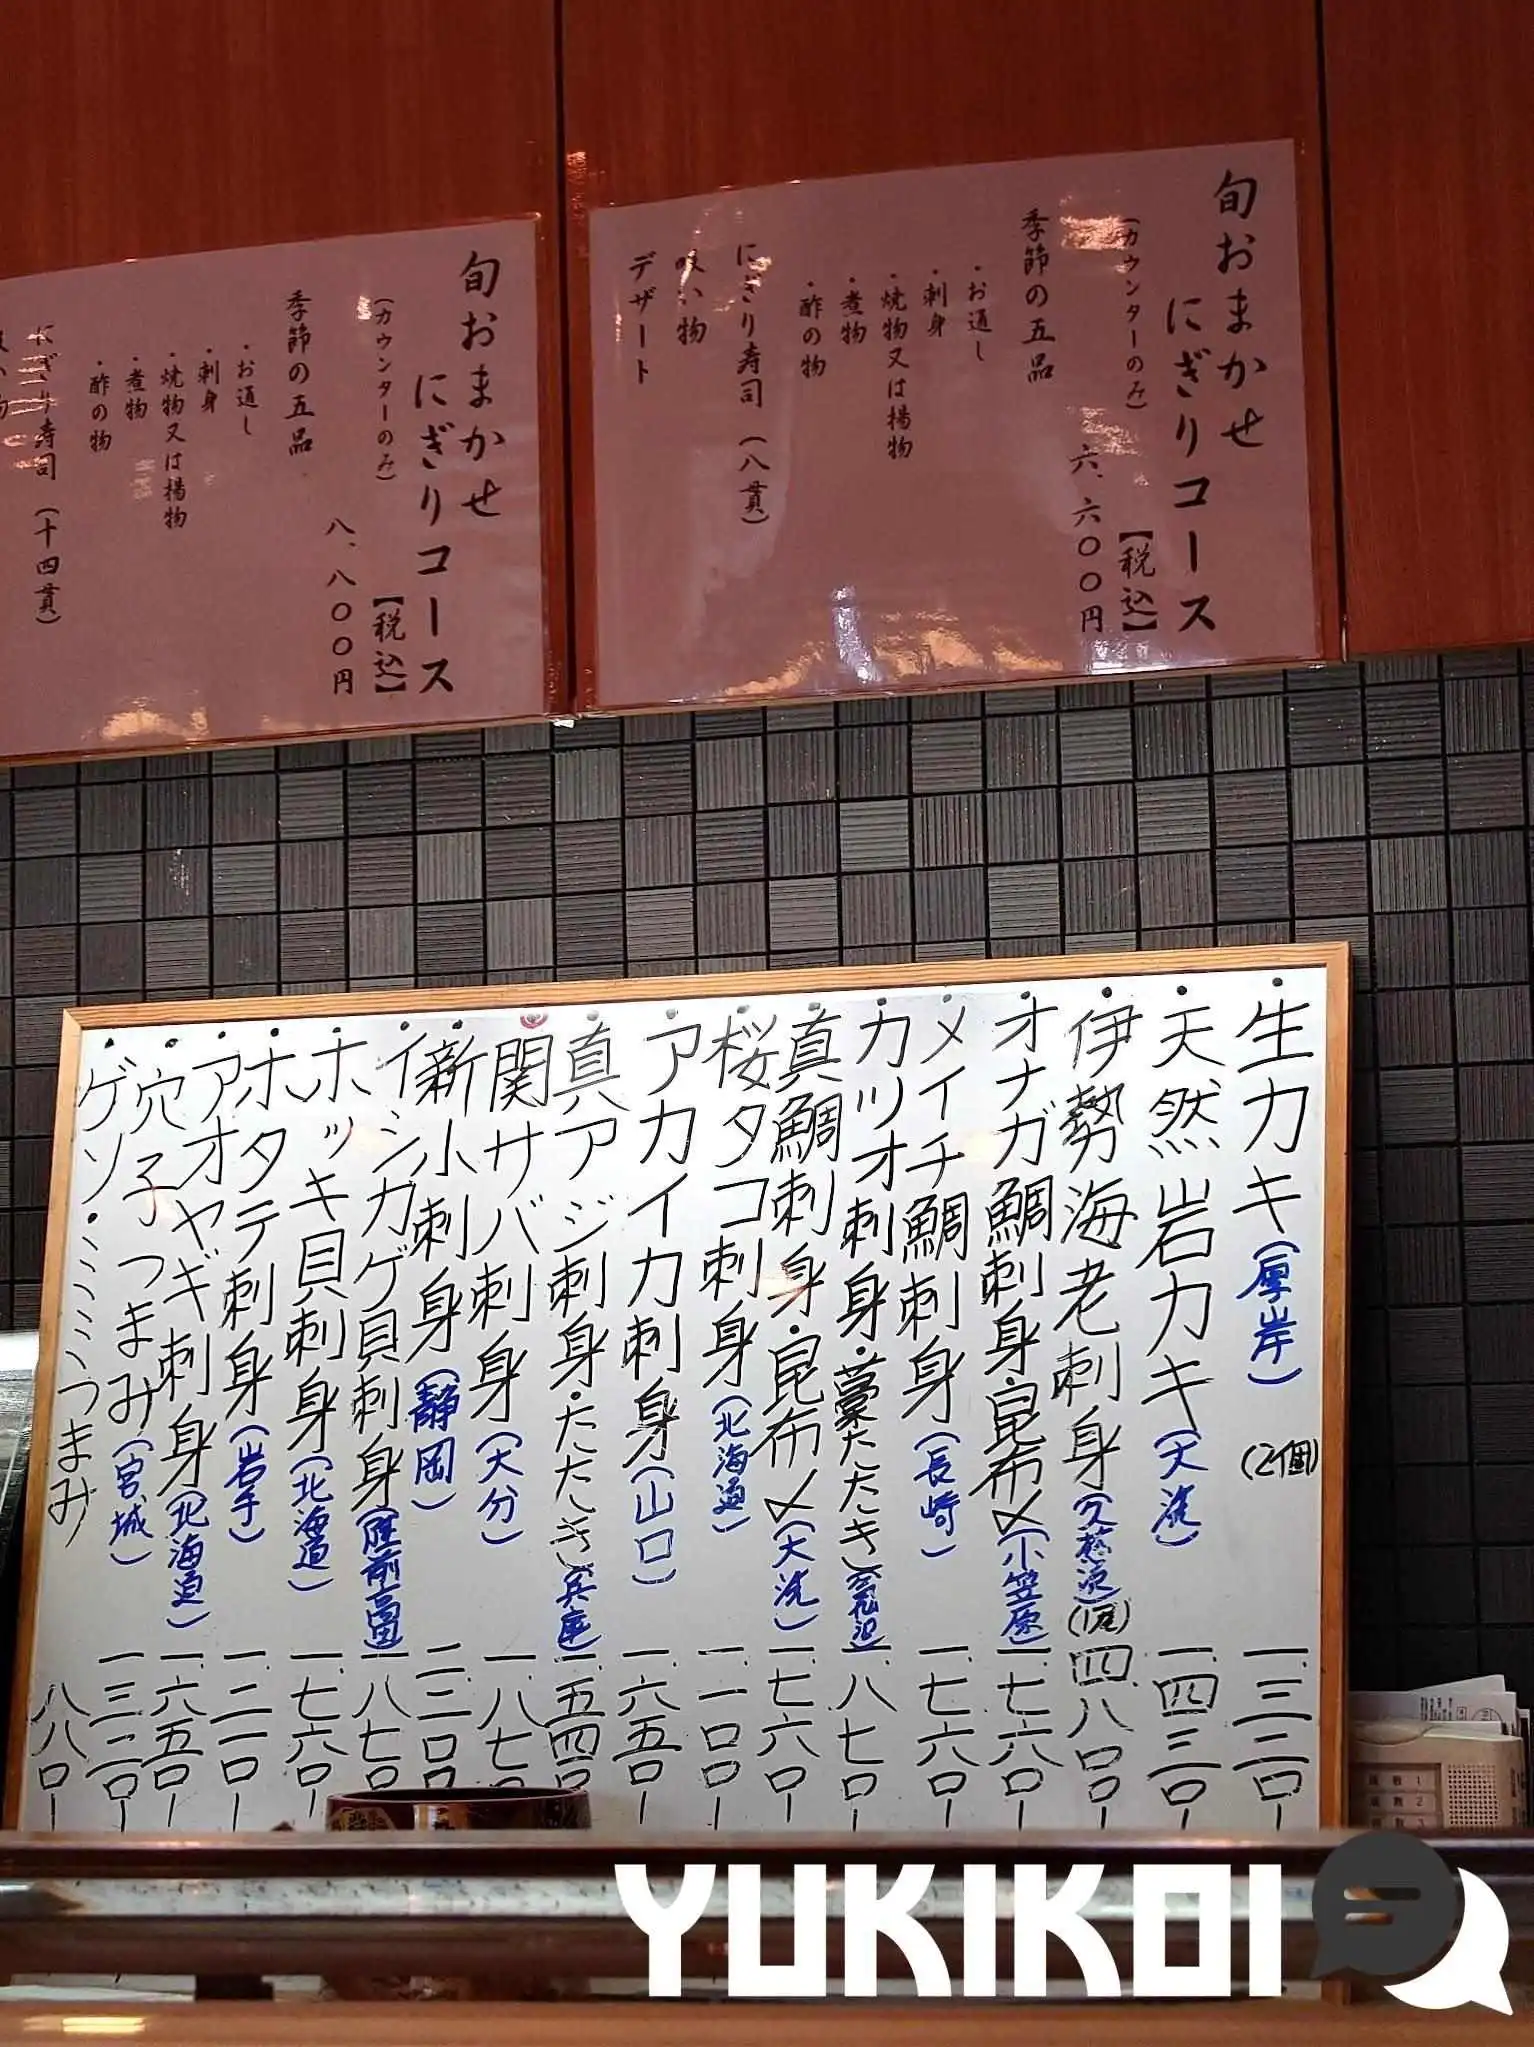 旬おまかせ
にぎりコース
【税込】
(カウンターのみ)
六、六〇〇円
季節の五品
・お通し
・刺身
・焼物又は揚物
・煮物
・酢の物
にぎり寿司 (八貫)
吸い物
デザート
旬おまかせ
にぎりコース
【税込】
(カウンターのみ)
八、八〇〇円
季節の五品
・お通し
・刺身
・焼物又は揚物
・煮物
・酢の物
にぎり寿司 (十四貫)
生カキ(厚岸) (2個) 一.三二〇-
天然岩カキ(大洗) 一.四三〇-
伊勢海老刺身 (1尾) 四.八〇〇-
オナガ鯛刺身・昆布〆(小笠原) 一.七六〇-
メイチ鯛刺身(長崎) 一.七六〇-
カツオ刺身・藁たたき(気仙沼) 一.八七〇-
真鯛刺身・昆布〆(大洗) 一.七六〇-
桜タコ刺身(北海道) 一.一〇〇-
アカイカ刺身(山口) 一.六五〇-
真アジ刺身・たたき(兵庫) 一.五四〇-
関サバ刺身(大分) 一.八七〇
新小刺身(静岡) 二.二〇〇
イシガゲ貝刺身(陸前高田) 一.八七〇
ホッキ貝刺身(北海道) 一.七六〇-
ホタテ刺身(岩手) 一.二一〇-
アオヤギ刺身(北海道) 一.六五〇-
穴子つまみ(宮城) 一.三二〇-
ゲソ・ミミミつまみ 八八〇-
YUKIKOI